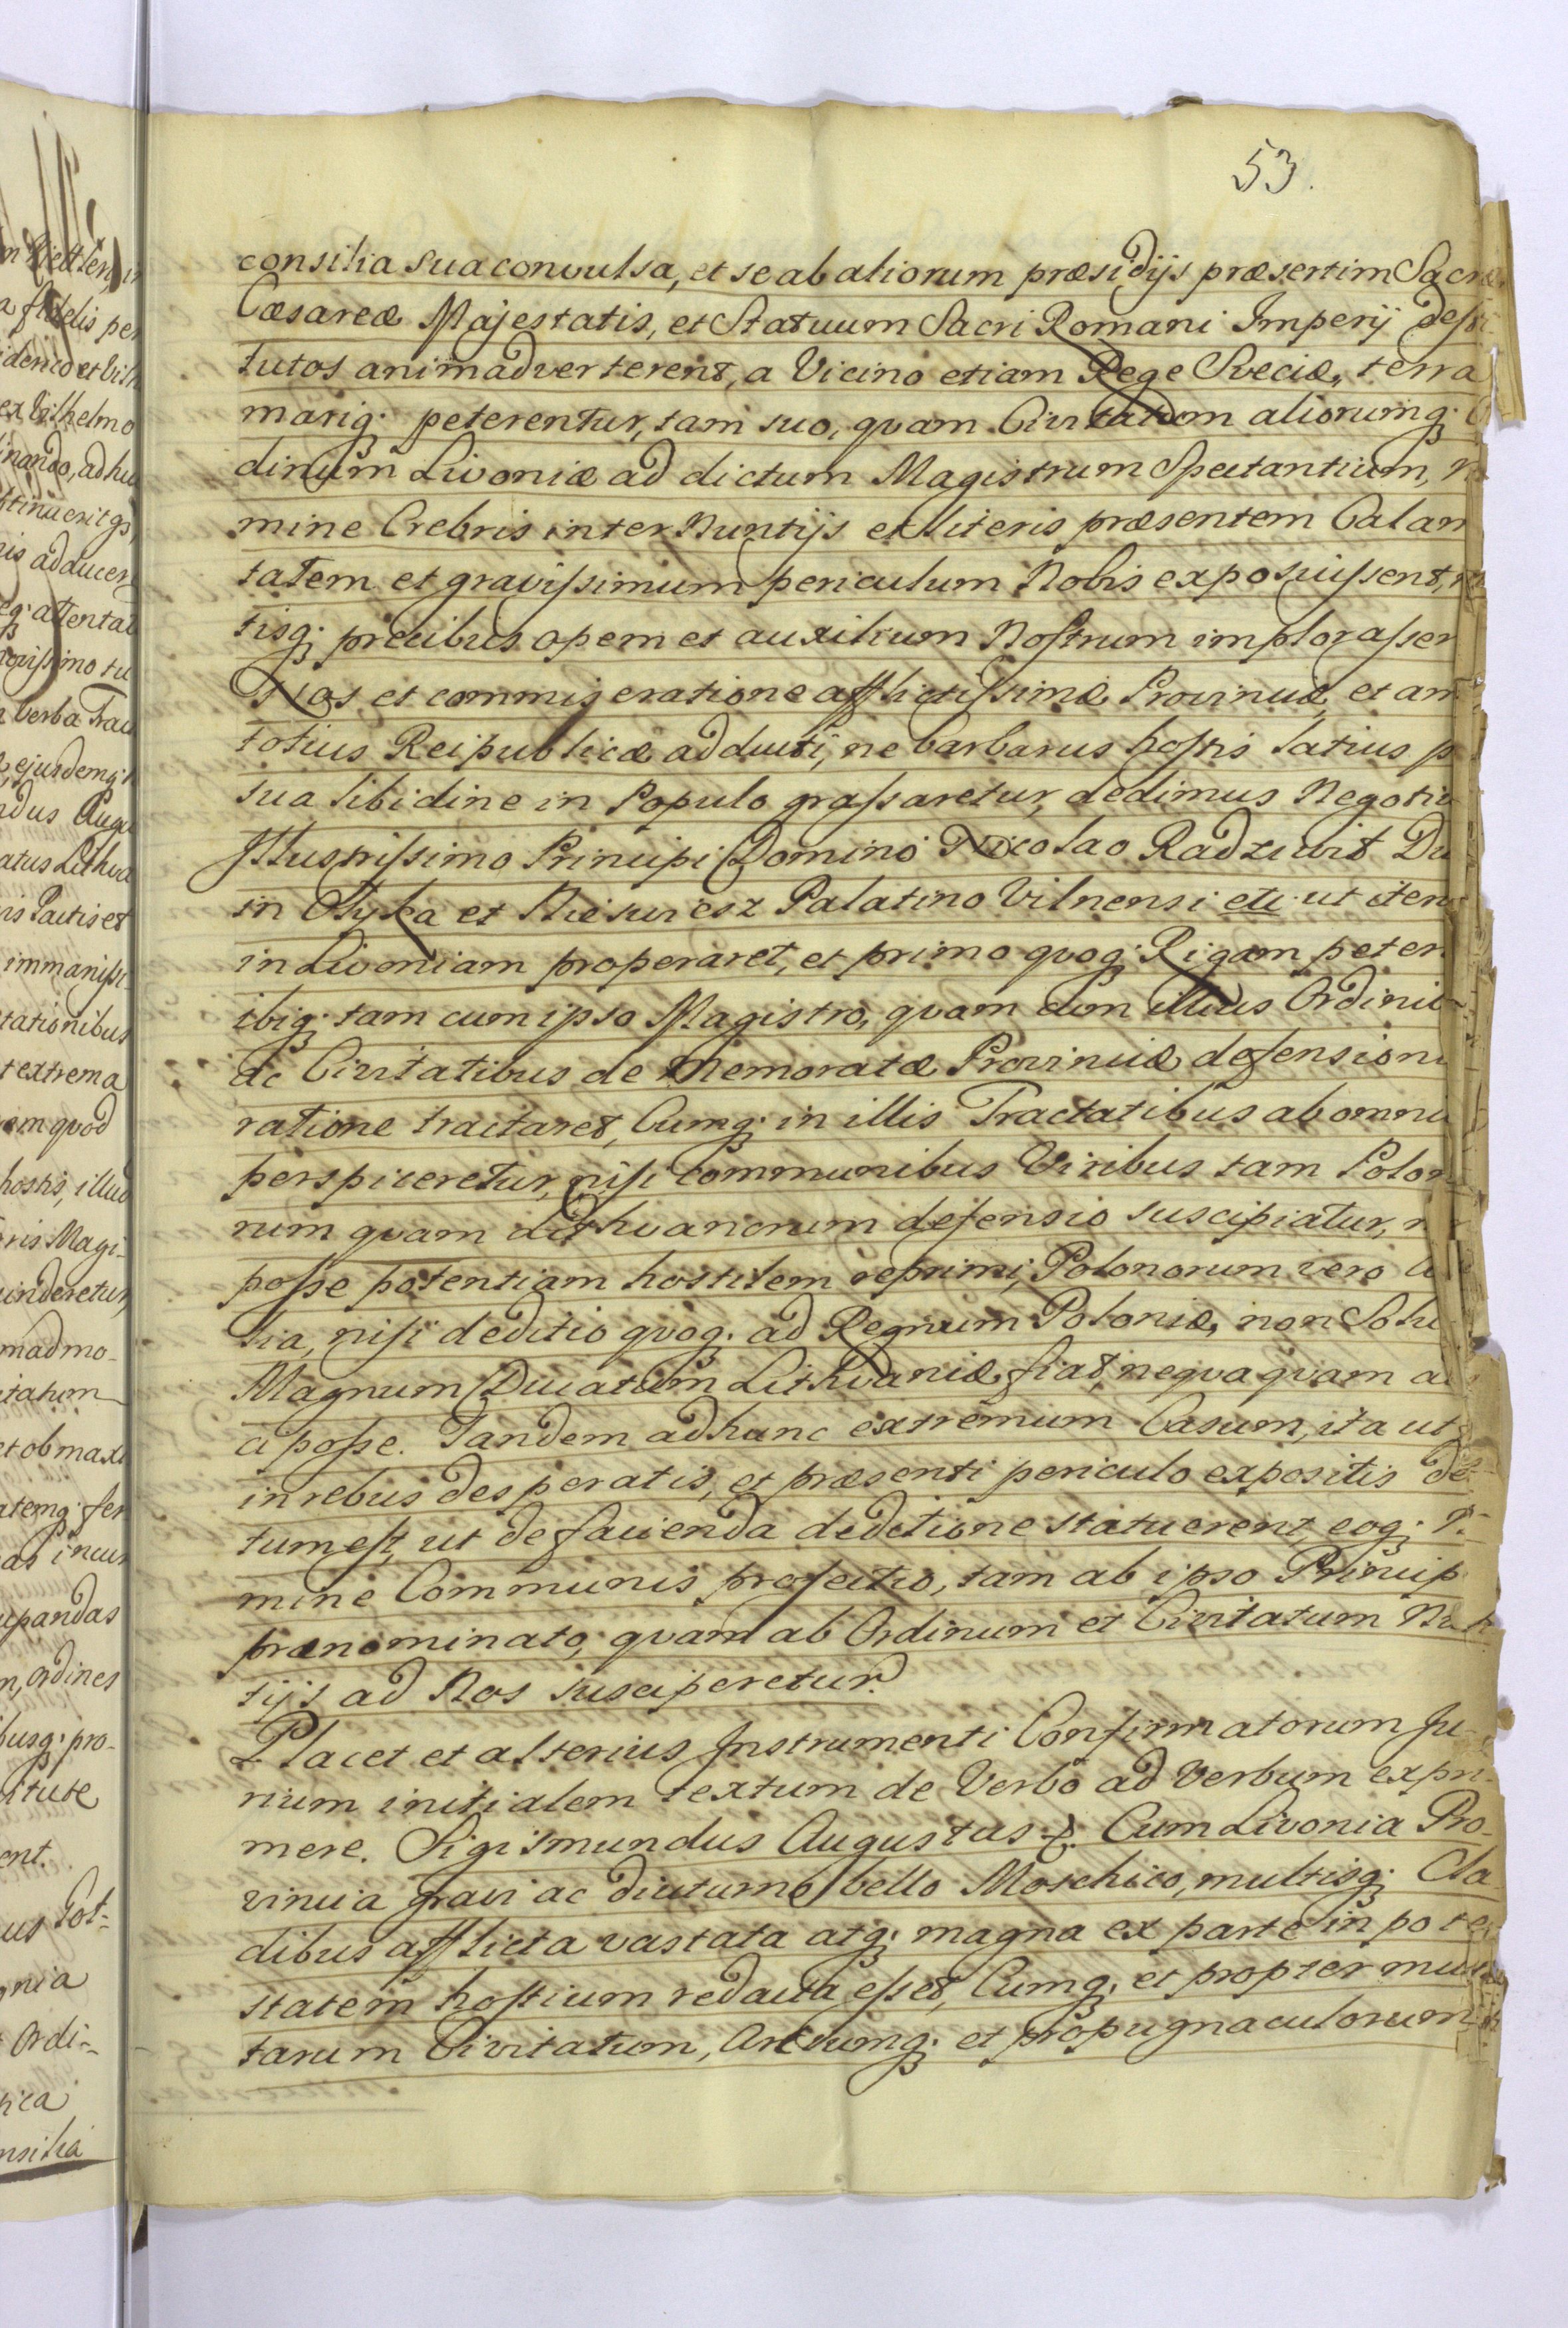 53.
consilia sua convulsa, et se ab aliorum præsidijs præsertim Sacræ
Cæsareæ Majestatis, et Statuum Sacri Romani Imperij desti-
tutos animadverterent, a Vicino etiam Rege Sveciæ, terra
mariq; peterentur, tam suo, quam Civitatum aliorumq; O
dinum Livoniæ ad dictum Magistrum Spectantium, n
mine Crebris inter Nuntijs et literis præsentem Calam
tatem et gravissimum periculum Nobis exposuissent,
tisq; precibus opem et auxilium Nostrum implorassen
Nos et commiseratione afflictissimæ Provinciæ, et am
totius Reipublicæ adducti, ne barbarus hostis latius p
sua libidine in Populo grassaretur, dedimus Negotiu
Illustrissimo Principi Domino Nicolao Radziwit Du
in Olyka et Niesuiesz Palatino Vilnensi etc. ut iter
in Livoniam properaret, et primo quoq; Rigam peter
ibiq; tam cum ipso Magistro, quam cum illius Ordinib
ac Civitatibus de Memoratæ Provinciæ defensioni
ratione tractaret, Cumq; in illis Tractatibus ab omni
perspiceretur, nisi communibus Viribus tam Polon
rum quam Lithvanorum defensio suscipiatur, n
posse potentiam hostilem reprimi, Polonorum vero a
lia, nisi deditio quoq; ad Regnum Poloniæ, non Solu
Magnum Ducatum Lithvaniæ fiat, nequaquam ad
ci posse. Tandem ad hunc extremum Casum, ita ut
in rebus desperatis, et præsenti periculo expositis de-
tum est, ut de facienda deditione statuerent, eoq; N
mine Communis profectio, tam ab ipso Princip
prænominato, quam ab Ordinum et Civitatum Nun
tijs ad Nos susciperetur.
Placet et alterius Instrumenti Confirmatorum Ju-
rium initialem textum de Verbo ad Verbum expri-
mere. Sigismundus Augustus &. Cum Livonia Pro-
vincia gravi ac diuturno bello Moschico, multisq; Cla
dibus afflicta vastata atq; magna ex parte in pote
statem hostium redacta esset, Cumq; et propter mul
tarum Civitatum, Arciumq; et propugnaculorum